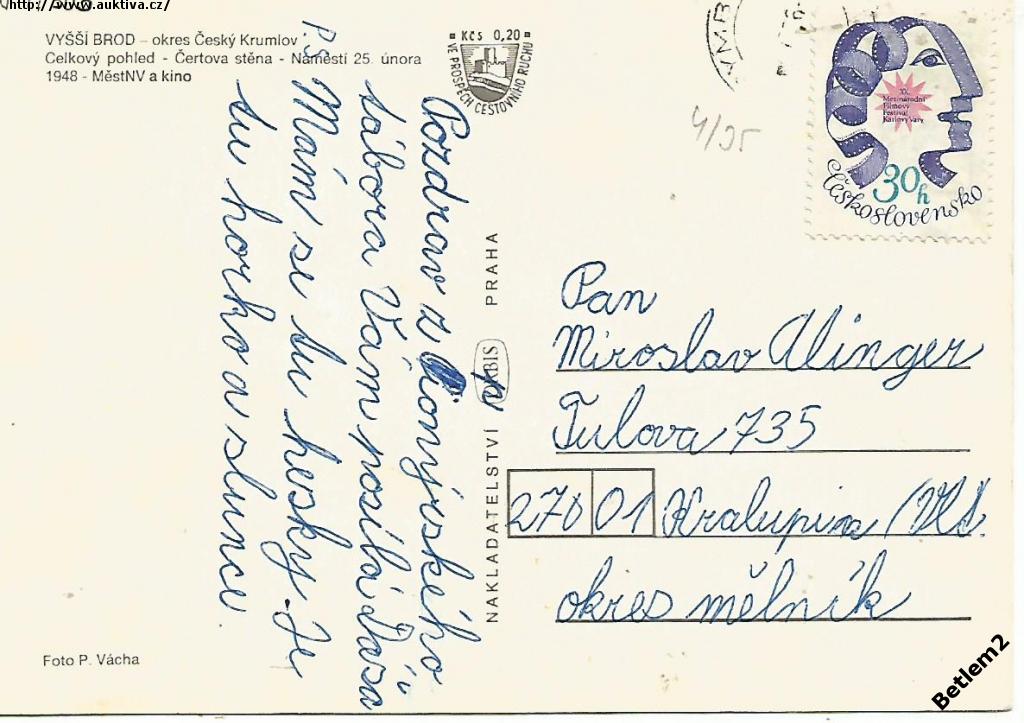 http://www.auktiva.cz/
VYŠŠÍ BROD – okres Český Krumlov
Celkový pohled - Čertova stěna - Náměstí 25. února
1948 - MěstNV a kino
Kčs 0,20
VE PROSPĚCH CESTOVNÍHO RUCHU
4/95
X. Mezinárodní
Filmový
Festival
Karlovy Vary
30h
Československo
Pozdrav z Pionýrského
tábora Vám posílá
P.S Mám se tu hesky. Je
tu horko a slunce
NAKLADATELSTVÍ ORBIS PRAHA
Pan
Miroslav Ulinger
Tulova 735
27001 Kralupin /Vlt.
okres mělník
Foto P. Vácha
Betlem2